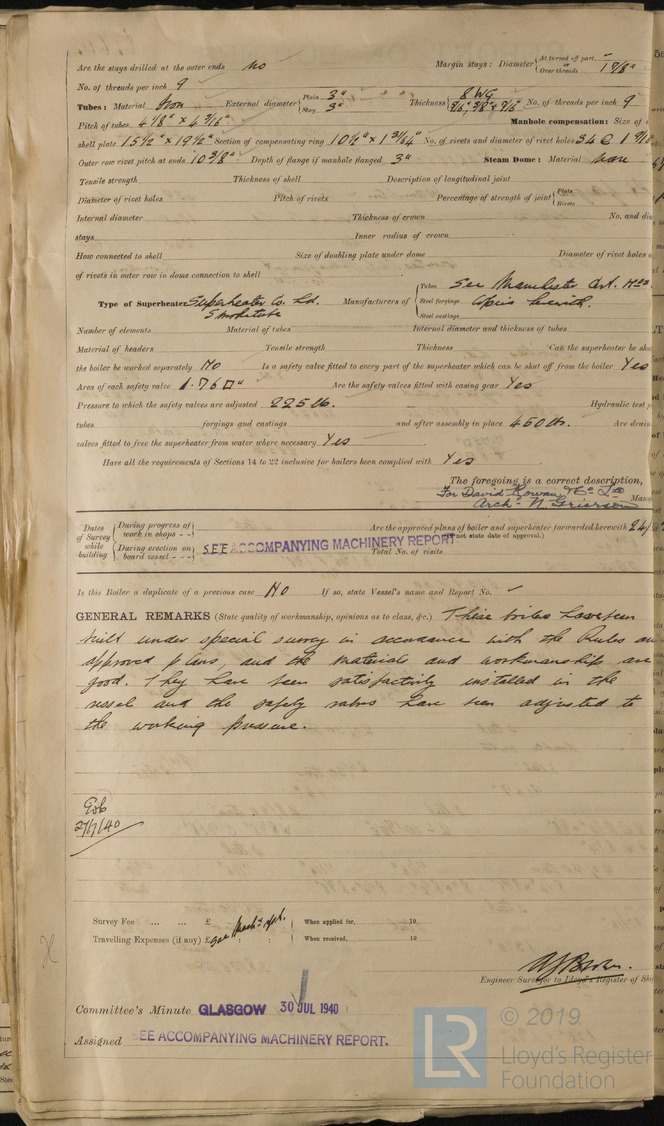 Are the stays drilled at the outer ends No Margin stays: Diameter { At turned off part, Over threads 1 7/8"
No. of threads per inch 9
Tubes: Material Iron External diameter { Plain 3" Stay 3" Thickness { 8 WG 5/16", 3/8" & 7/16" No. of threads per inch 9
Pitch of tubes 4 1/8" x 4 3/16" Manhole compensation: Size of
shell plate 15 1/2" x 19 1/2" Section of compensating ring 10 1/2" x 1 31/64" No. of rivets and diameter of rivet holes 34 @ 1
Outer row rivet pitch at ends 10 3/8" Depth of flange if manhole flanged 3" Steam Dome: Material None
Tensile strength Thickness of shell Description of longitudinal joint
Diameter of rivet holes Pitch of rivets Percentage of strength of joint { Plate Rivets
Internal diameter Thickness of crown No. and dia
stays Inner radius of crown
How connected to shell Size of doubling plate under dome Diameter of rivet holes a
of rivets in outer row in dome connection to shell
Type of Superheater Superheater Co. Ld. Smoketube Manufacturers of { Tubes See Manchester Crt. Nos
Steel forgings Copies herewith.
Steel castings
Number of elements Material of tubes Internal diameter and thickness of tubes
Material of headers Tensile strength Thickness Can the superheater be shu
the boiler be worked separately No Is a safety valve fitted to every part of the superheater which can be shut off from the boiler Yes
Area of each safety valve 1.76 □" Are the safety valves fitted with easing gear Yes
Pressure to which the safety valves are adjusted 225 lb. Hydraulic test p
tubes forgings and castings and after assembly in place 450 lb. Are drain
valves fitted to free the superheater from water where necessary Yes
Have all the requirements of Sections 14 to 22 inclusive for boilers been complied with Yes
The foregoing is a correct description,
For David Rowan & Co Ltd Man
Archd N Grierson
Dates of Survey while building { During progress of work in shops - - During erection on board vessel - - - SEE ACCOMPANYING MACHINERY REPORT
Are the approved plans of boiler and superheater forwarded herewith 24/
(If not state date of approval.)
Total No. of visits
Is this Boiler a duplicate of a previous case No If so, state Vessel's name and Report No.
GENERAL REMARKS (State quality of workmanship, opinions as to class, &c.) These boilers have been
built under special survey in accordance with the Rules an
approved plans, and the materials and workmanship are
good. They have been satisfactorily installed in the
vessel and the safety valves have been adjusted to
the working pressure.
27/7/40
Survey Fee ... ... £ See Mach. rpt. When applied for, 19
Travelling Expenses (if any) £ : : When received, 19
Engineer Surveyor to Lloyd's Register of Ship
Committee's Minute GLASGOW 30 JUL 1940
Assigned SEE ACCOMPANYING MACHINERY REPORT.
LR © 2019
Lloyd's Register
Foundation